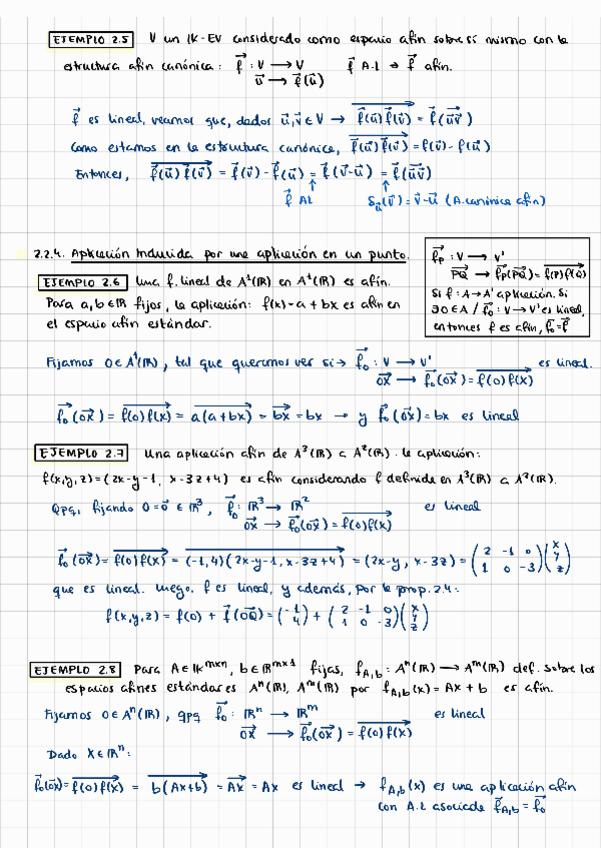 EJEMPLO 2.5 V un IK-EV considerado como espacio afín sobre sí mismo con la
estructura afín canónica: f⃗ : V → V f⃗ A.L → f⃗ afín.
u⃗ → f⃗(u⃗)
f⃗ es lineal, veamos que, dados u⃗, v⃗ ∈ V → f⃗(u⃗)f⃗(v⃗) = f⃗(uv⃗)
Como estamos en la estructura canónica, f⃗(u⃗)f⃗(v⃗) = f(v⃗) - f(u⃗)
Entonces, f⃗(u⃗)f⃗(v⃗) = f⃗(v⃗) - f⃗(u⃗) = f⃗(v⃗-u⃗) = f⃗(uv⃗)
f⃗ AL δu⃗(v⃗) = v⃗-u⃗ (A.canónica afín)
2.2.4. Aplicación Inducida por una aplicación en un punto.
f⃗p : V → V'
PQ⃗ → f⃗p(PQ⃗) = f(P)f(Q)
Si f : A → A' aplicación. Si
∃O ∈ A / f⃗o : V → V' es lineal,
entonces f es afín, f⃗o = f⃗
EJEMPLO 2.6 Una f. lineal de A¹(IR) en A¹(IR) es afín.
Para a, b ∈ IR fijos, la aplicación: f(x) = a + bx es afín en
el espacio afín estándar.
Fijamos O ∈ A¹(IR), tal que queremos ver si → f⃗o : V → V' es lineal.
OX⃗ → f⃗o(OX⃗) = f(o)f(x)
f⃗o(OX⃗) = f(o)f(x) = a(a+bx) = bx⃗ = bx → y f⃗o(OX⃗) = bx es lineal
EJEMPLO 2.7 Una aplicación afín de A³(IR) a A²(IR). La aplicación:
f(x,y,z) = (2x-y-1, x-3z+4) es afín considerando f definida en A³(IR) a A²(IR).
QPQ, fijando O = o⃗ ∈ IR³, f⃗o : IR³ → IR² es lineal
OX⃗ → f⃗o(OX⃗) = f(o)f(x)
f⃗o(OX⃗) = f(o)f(x) = (-1,4)(2x-y-1, x-3z+4) = (2x-y, x-3z) = (2 -1 0 / 1 0 -3)(x y z)
que es lineal. Luego, f es lineal, y además, por la prop. 2.4:
f(x,y,z) = f(o) + f⃗(OQ⃗) = (-1 / 4) + (2 -1 0 / 1 0 -3)(x y z)
EJEMPLO 2.8 Para A ∈ IK^mxn, b ∈ IR^mx1 fijas, f_A,b : Aⁿ(IR) → Aᵐ(IR) def. sobre los
espacios afines estándares Aⁿ(IR), Aᵐ(IR) por f_A,b(x) = Ax + b es afín.
Fijamos O ∈ Aⁿ(IR), qpq f⃗o : IRⁿ → IRᵐ es lineal
OX⃗ → f⃗o(OX⃗) = f(o)f(x)
Dado X ∈ IRⁿ:
f⃗o(OX⃗) = f(o)f(x) = b(Ax+b) = Ax⃗ = Ax es lineal → f_A,b(x) es una aplicación afín
con A.L asociada f⃗_A,b = f⃗o